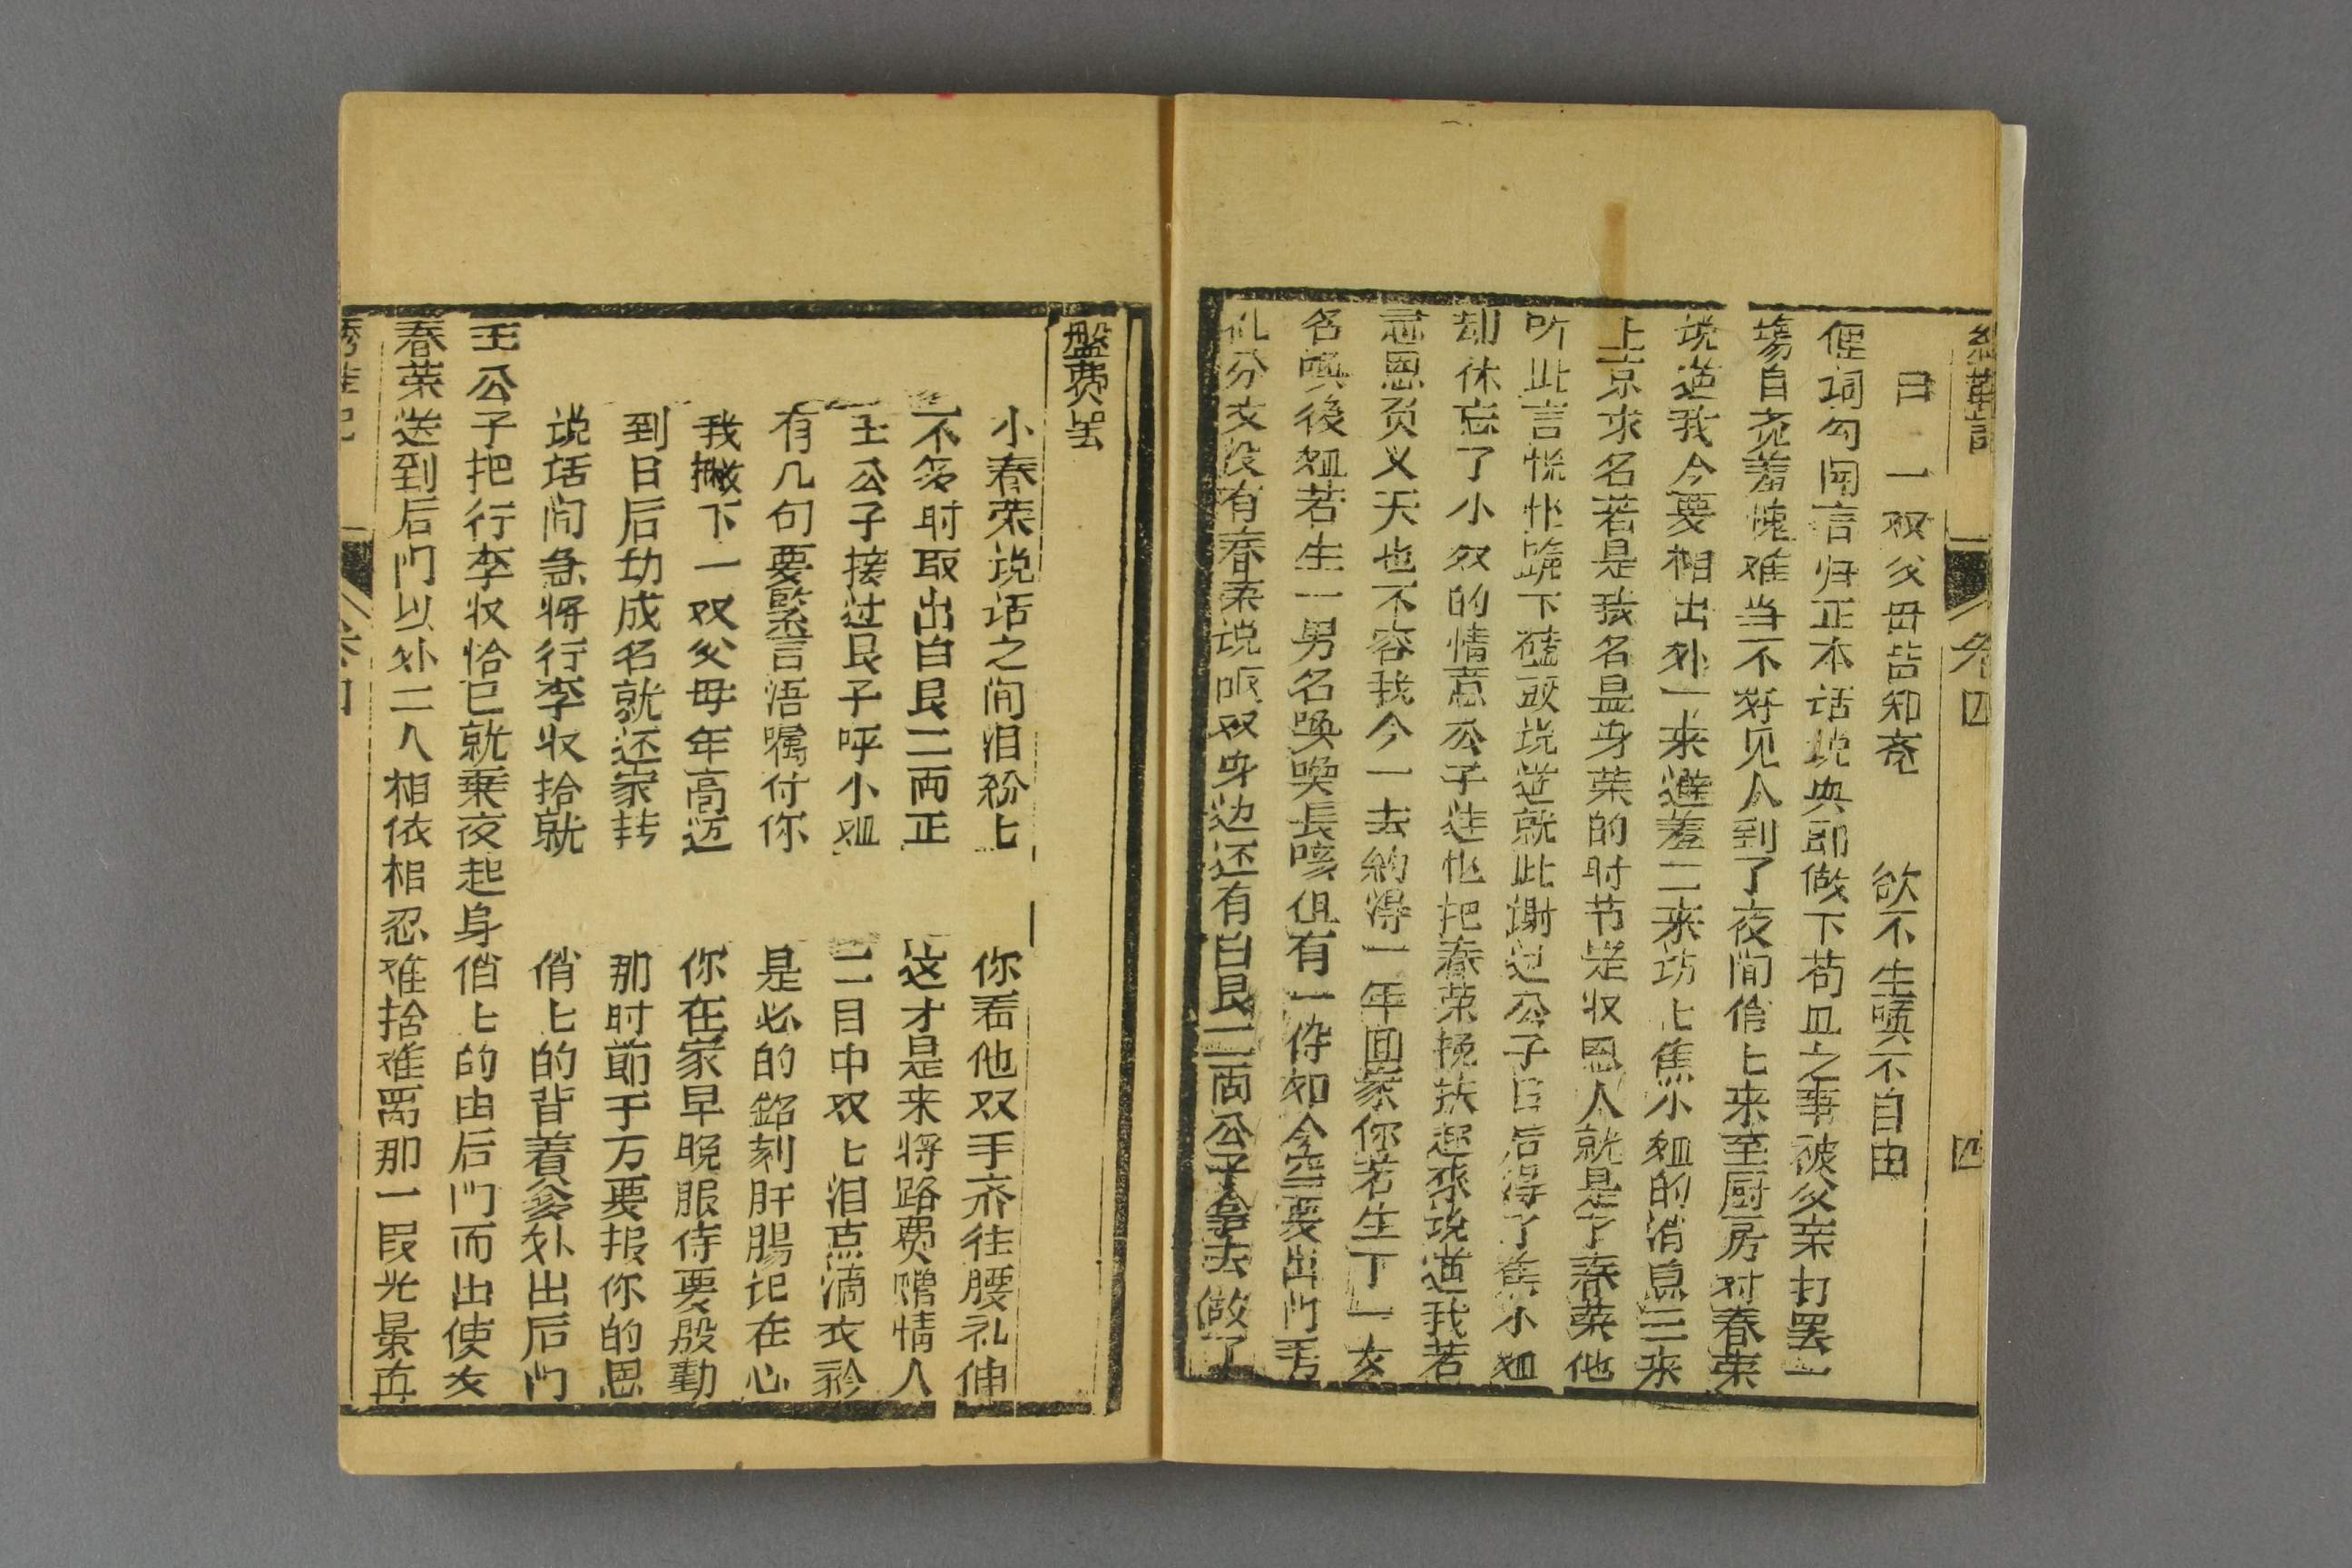 卷四
四
曰一双父母皆知 欲不生嗔不自由
俚词勾闲言归正本话说 即做下苟且之事被父亲打罢一
場自竟羞愧难当不好见人到了夜间俏匕来至厨房对春荣
说道我今要相出外一来 羞二来访匕焦小姐的消息三来
上京求名若是我名显身荣的时节 恩人就是了春荣他
听此言慌忙跪下磕 说道就此谢过公子日后得了焦小姐
却休忘了小奴的情意公子连忙把春荣挽扶起来说道我若
忘恩负义天也不容我今一去約得一年回家你若生下一女
名唤後姐若生一男名唤 長咳但有一件如今空要出门手
分文没有春荣说 奴身边还有白艮二两公子拿去做了
盤费罢
小春荣说话之间泪纷匕 你看他双手齐往腰礼伸
不多时取出白艮二両正 这才是来将路费赠情人
王公子接过艮子呼小姐 二目中双匕泪点滴衣衿
有几句要緊言语嘱付你 是必的銘刻肝腸记在心
我撇下一双父母年高迈 你在家早晚服侍要殷勤
到日后功成名就还家转 那时節千万要报你的恩
说话间急将行李收拾就 俏匕的背着爹外出后门
王公子把行李收恰已就乗夜起身俏匕的由后门而出使女
春荣送到后门以外二人相依相忍难捨难离那一段光景再